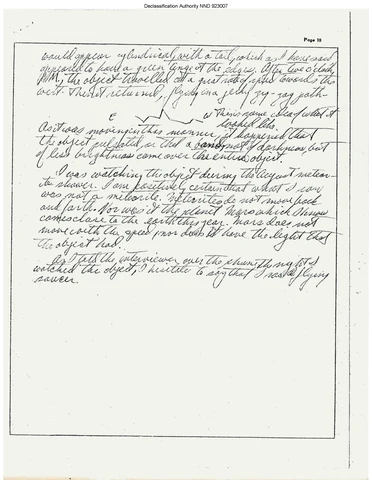 Declassification Authority NND 923007
Page 10
would appear cylindrical, with a tail, which as I have said
appeared to have a green tinge at the edges. After two o'clock
A.M., the object travelled at a great rate of speed towards the
west. Then it returned, flying in a jerky zig-zag path-
E W This is some idea of what it
looked like.
As it was moving in this manner, it happened that
the object or that a not of darkness, but
of less brightness came over the entire object.
I was watching the object during the August meteor-
ite shower. I am positively certain that what I saw
was not a meteorite. Meteorites do not move back
and forth. Nor was it the planet Mars which I know
comes close to the earth this year. Mars does not
move with the speed, nor does it have the light that
the object had.
As I told the interviewer over the phone the night I
watched the object, I hesitate to say that I saw a flying
saucer.